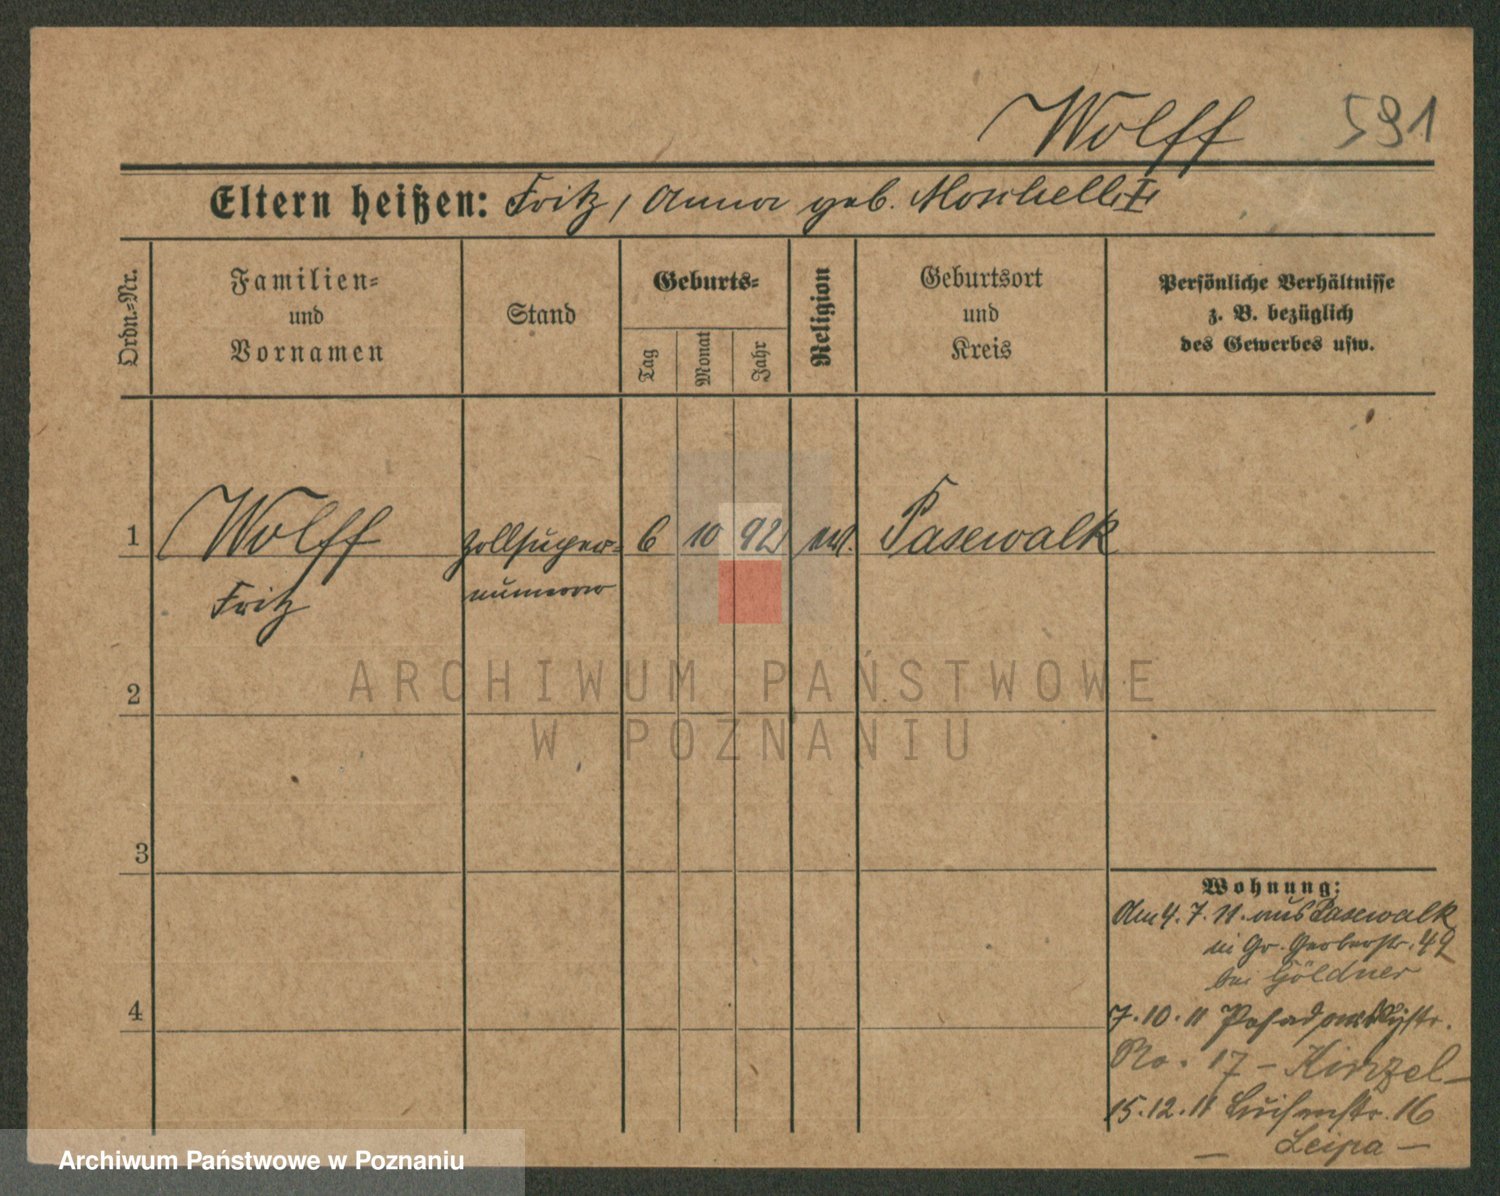 Wolff 591
Eltern heißen: Fritz, Anna geb.
Ordn.-Nr.
Familien-
und
Vornamen
Stand
Geburts-
Tag
Monat
Jahr
Religion
Geburtsort
und
Kreis
Persönliche Verhältnisse
z. B. bezüglich
des Gewerbes usw.
1 Wolff Zollsuper- 6 10 92 ev. Pasewalk
Fritz numerar
2
3
4
Wohnung:
Am 4.7.11. aus Pasewalk
in Gr. Gerberstr. 49
bei Göldner
7.10.11
No. 17 –
15.12.11 Luisenstr. 16
– Leipa –
ARCHIWUM PAŃSTWOWE
W POZNANIU
Archiwum Państwowe w Poznaniu